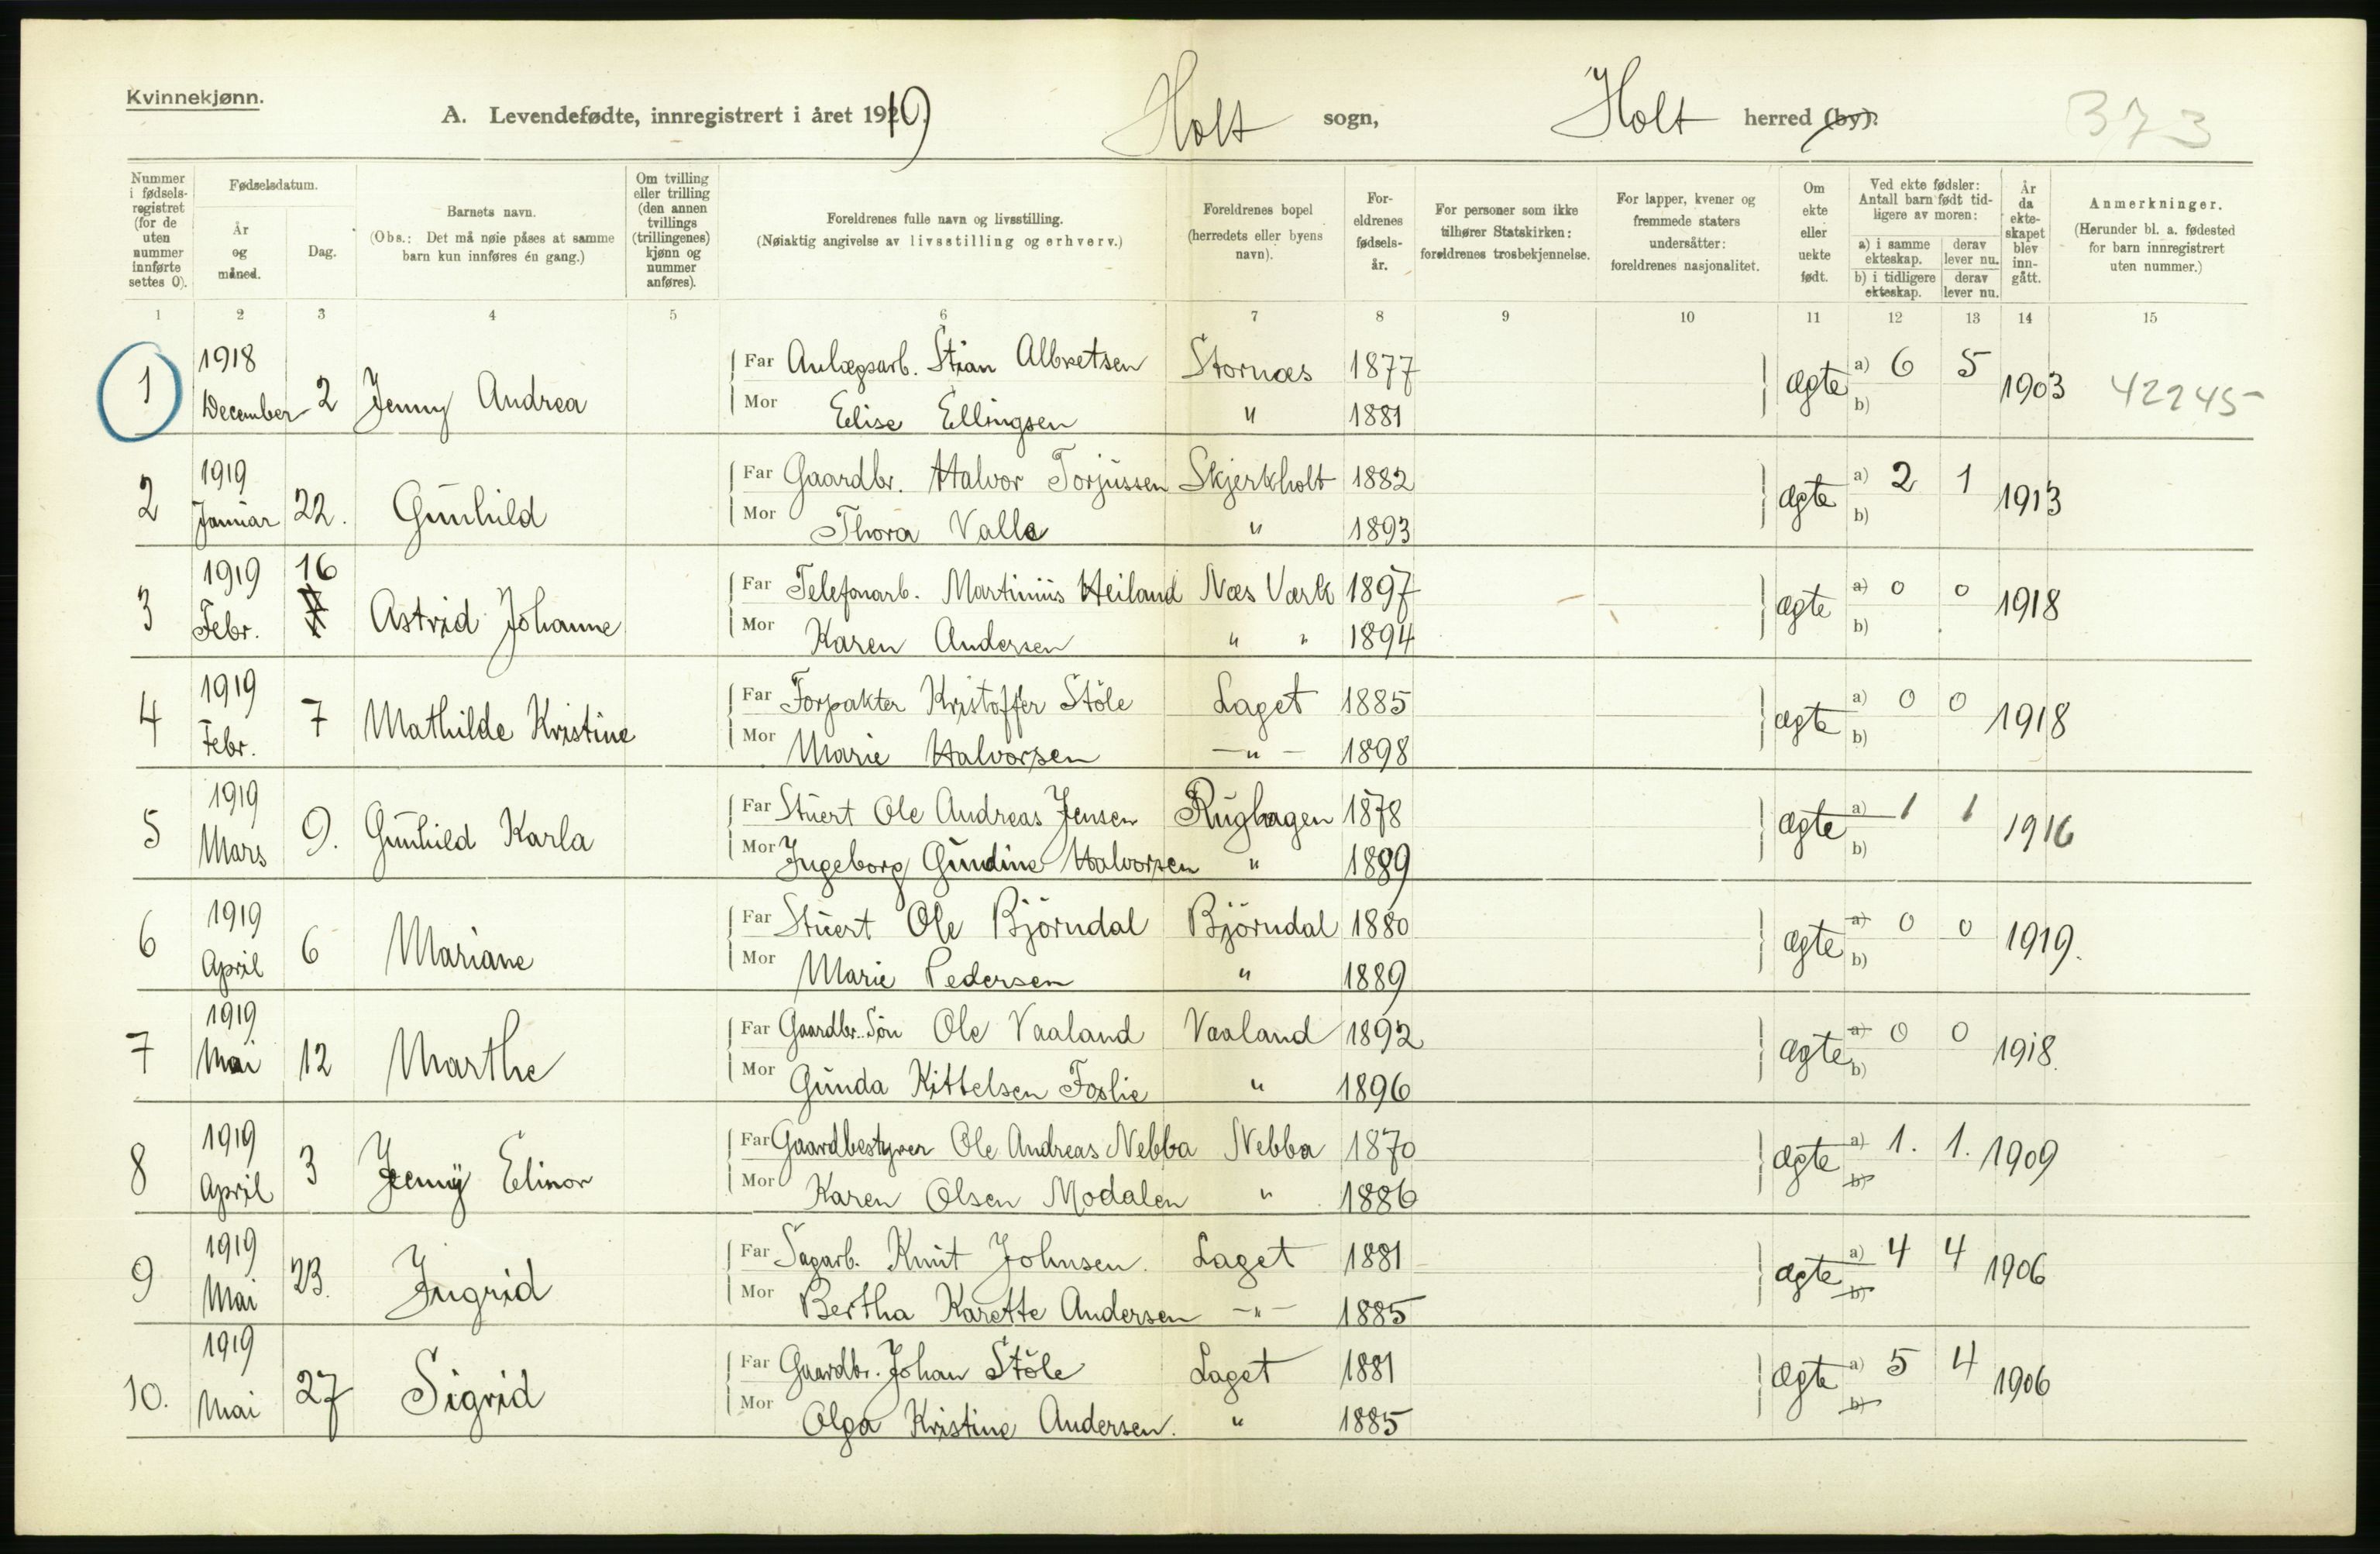 Kvinnekjønn.
A. Levendefødte, innregistrert i året 1919. Holt sogn, Holt herred (by). 373
Nummer i fødsels-registret (for de uten nummer innførte settes 0).
Fødselsdatum.
År og måned.
Dag.
Barnets navn.
(Obs.: Det må nøie påses at samme barn kun innføres én gang.)
Om tvilling eller trilling (den annen tvillings (trillingenes) kjønn og nummer anføres).
Foreldrenes fulle navn og livsstilling.
(Nøiaktig angivelse av livsstilling og erhverv.)
Foreldrenes bopel (herredets eller byens navn).
For-eldrenes fødsels-år.
For personer som ikke tilhører Statskirken: foreldrenes trosbekjennelse.
For lapper, kvener og fremmede staters undersåtter: foreldrenes nasjonalitet.
Om ekte eller uekte født.
Ved ekte fødsler: Antall barn født tid-ligere av moren:
a) i samme ekteskap.
derav lever nu.
b) i tidligere ekteskap.
derav lever nu.
År da ekte-skapet blev inn-gått.
Anmerkninger.
(Herunder bl. a. fødested for barn innregistrert uten nummer.)
1 2 3 4 5 6 7 8 9 10 11 12 13 14 15
1 1918 December 2 Jenny Andrea Far Anlægsarb. Stian Albretsen Stornæs 1877 ægte a) 6 5 1903 42245
Mor Elise Ellingsen " 1881 b)
2 1919 Januar 22. Gunhild Far Gaardbr. Halvor Torjussen Skjerkholt 1882 ægte a) 2 1 1913
Mor Thora Valle " 1893 b)
3 1919 Febr. 16 Astrid Johanne Far Telefonarb. Martinius Heiland Næs Værk 1897 ægte a) 0 0 1918
Mor Karen Andersen " " 1894 b)
4 1919 Febr. 7 Mathilde Kristine Far Forpakter Kristoffer Støle Laget 1885 ægte a) 0 0 1918
Mor Marie Halvorsen - " - 1898 b)
5 1919 Mars 9. Gunhild Karla Far Stuert Ole Andreas Jensen Rughagen 1878 ægte a) 1 1 1916
Mor Ingeborg Gundine Halvorsen " 1889 b)
6 1919 April 6 Mariane Far Stuert Ole Björndal Björndal 1880 ægte a) 0 0 1919.
Mor Marie Pedersen " 1889 b)
7 1919 Mai 12 Marthe Far Gaardbr. Sön Ole Vaaland Vaaland 1892 ægte a) 0 0 1918.
Mor Gunda Kittelsen Foslie " 1896 b)
8 1919 April 3 Jenny Elinor Far Gaardbestyrer Ole Andreas Nebba Nebba 1870 ægte a) 1. 1. 1909
Mor Karen Olsen Modalen " 1886 b)
9 1919 Mai 23. Ingrid Far Sagarb. Knut Johnsen. Laget 1881 ægte a) 4 4 1906
Mor Bertha Karette Andersen - " - 1885 b)
10. 1919 Mai 27 Sigrid Far Gaardbr. Johan Støle Laget 1881 ægte a) 5 4 1906
Mor Olga Kristine Andersen. " 1885 b)